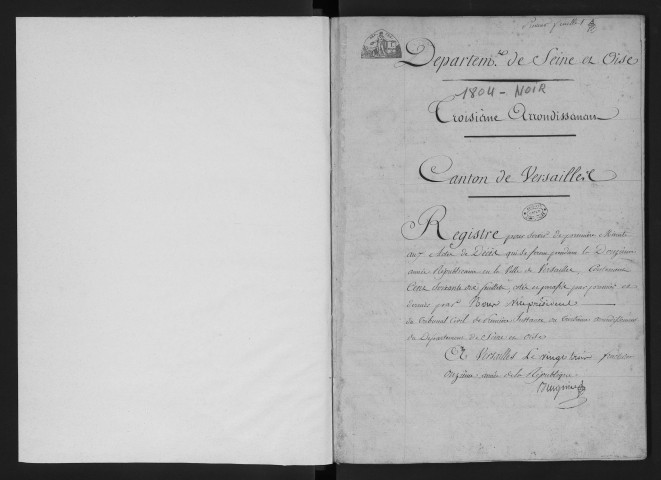 Premier feuillet
Departem.t de Seine et Oise
1804 - NOIR
Troisième Arrondissement
Canton de Versailles
Registre pour servir de première Minute
aux Actes de Décès qui se feront pendant la Douzième
année Républicaine en la Ville de Versailles, Contenant
Cent soixante dix feuillets, coté et paraphé par premier et
dernier par Nous vice président
du Tribunal Civil de Première Instance du troisième arrondissement
du Département de Seine et Oise
A Versailles le vingt trois fructidor
onzième année de la République